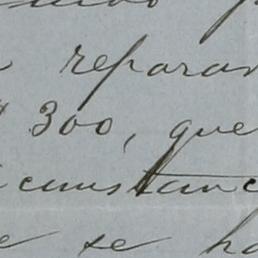 reparan
300, que
cunstanc
e se ha